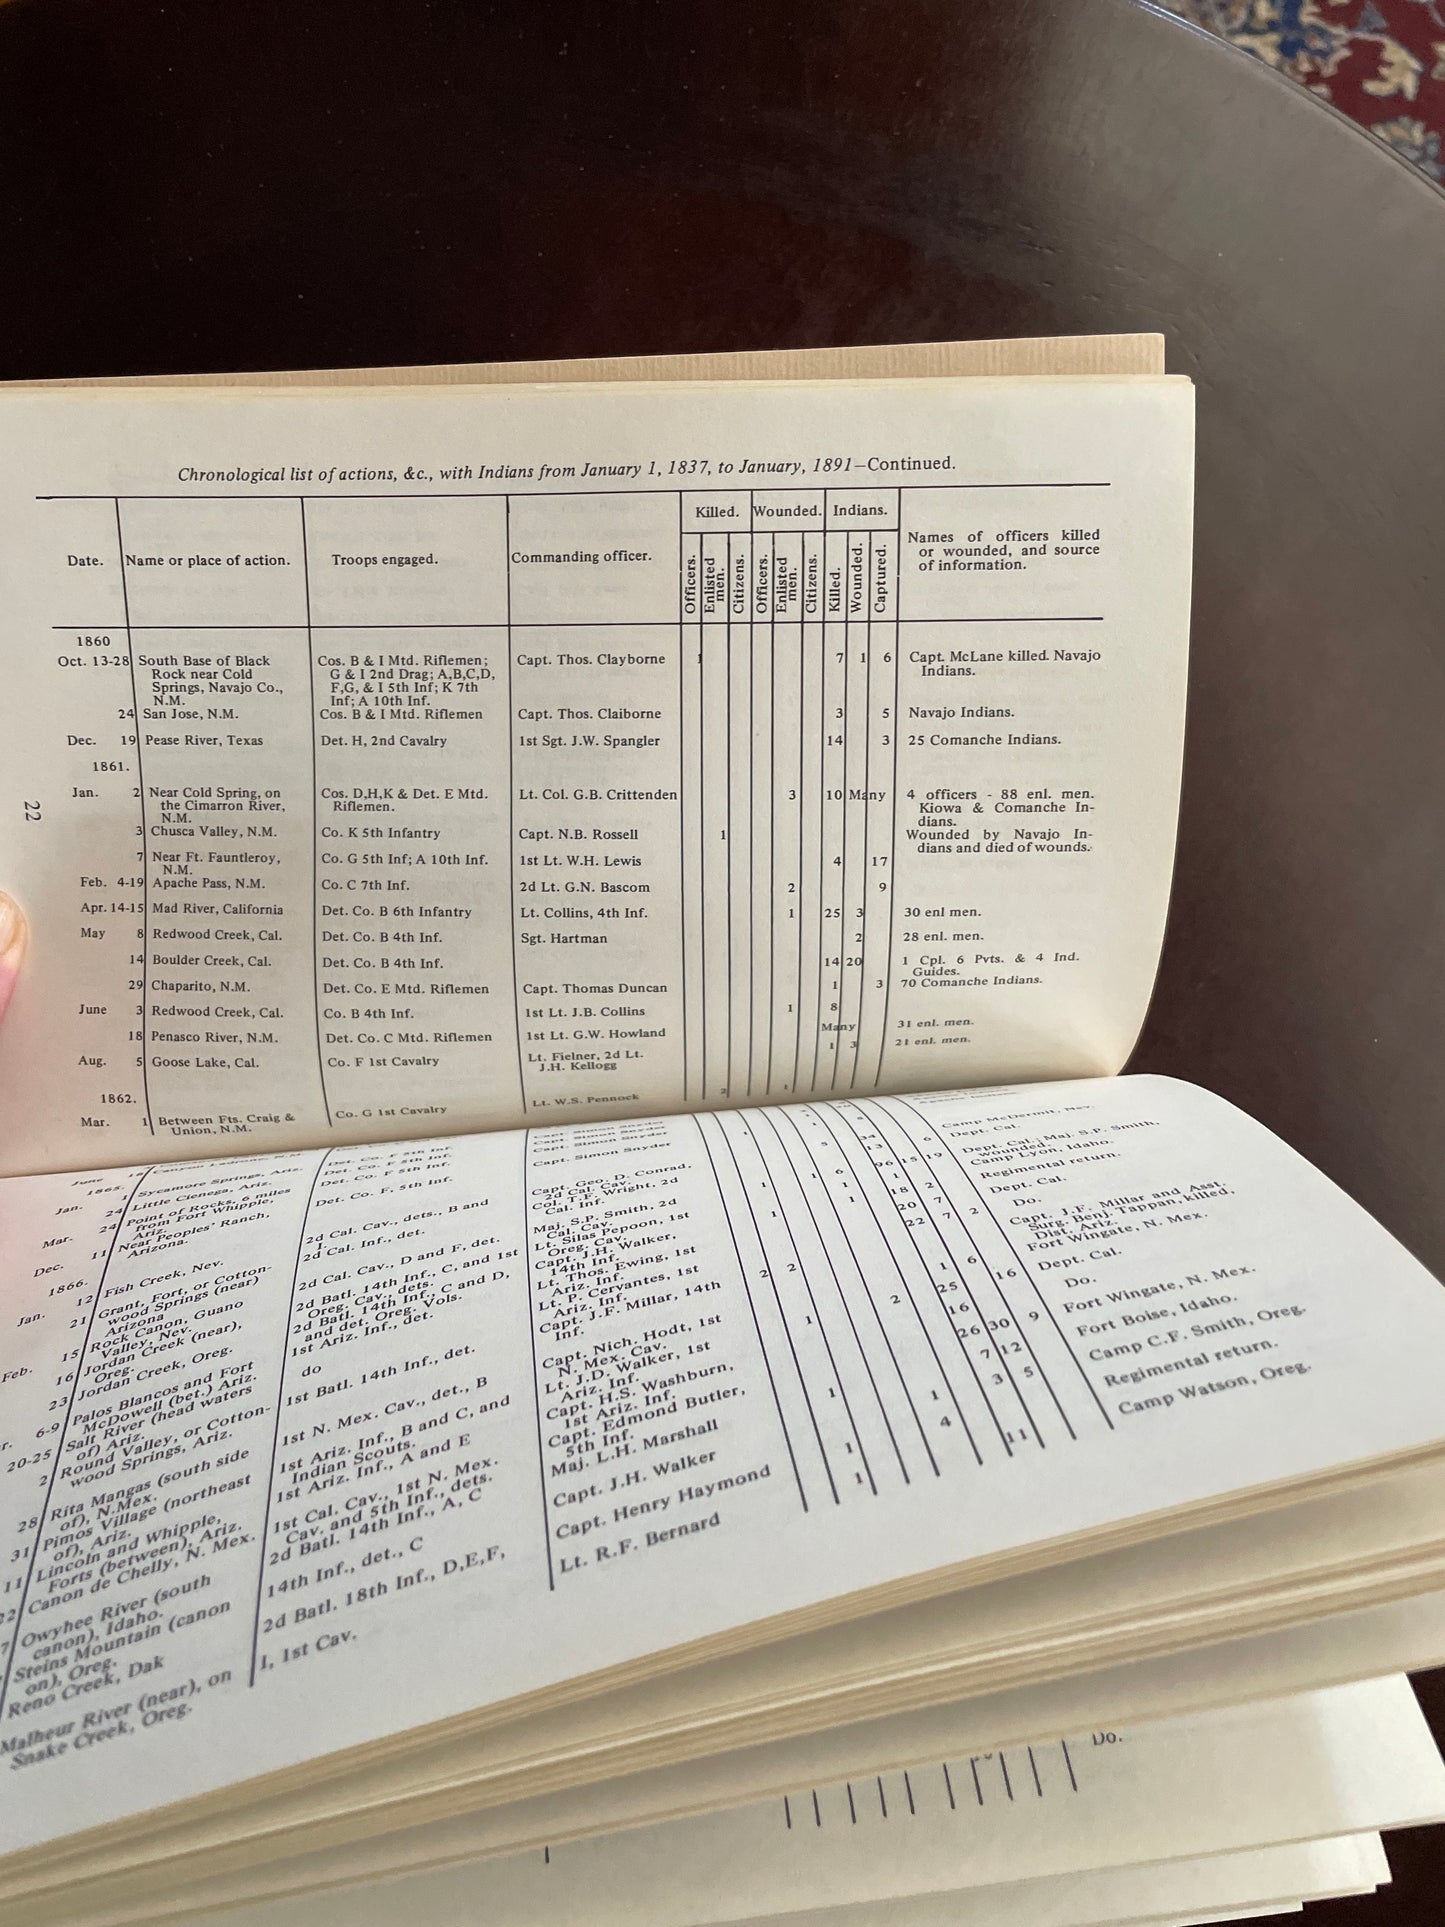 Chronological list of actions, &c., with Indians from January 1, 1837, to January, 1891—Continued.
Date. Name or place of action. Troops engaged. Commanding officer. Killed. Wounded. Indians. Names of officers killed
or wounded, and source
of information.
Officers. Enlisted men. Citizens. Officers. Enlisted men. Citizens. Killed. Wounded. Captured.
1860
Oct. 13-28 South Base of Black Cos. B & I Mtd. Riflemen; Capt. Thos. Clayborne 1 7 1 6 Capt. McLane killed. Navajo
Rock near Cold G & I 2nd Drag; A,B,C,D, Indians.
Springs, Navajo Co., F,G, & I 5th Inf; K 7th
N.M. Inf; A 10th Inf.
24 San Jose, N.M. Cos. B & I Mtd. Riflemen Capt. Thos. Claiborne 3 5 Navajo Indians.
Dec. 19 Pease River, Texas Det. H, 2nd Cavalry 1st Sgt. J.W. Spangler 14 3 25 Comanche Indians.
1861.
Jan. 2 Near Cold Spring, on Cos. D,H,K & Det. E Mtd. Lt. Col. G.B. Crittenden 3 10 Many 4 officers - 88 enl. men.
the Cimarron River, Riflemen. Kiowa & Comanche In-
N.M. dians.
3 Chusca Valley, N.M. Co. K 5th Infantry Capt. N.B. Rossell 1 Wounded by Navajo In-
dians and died of wounds.
7 Near Ft. Fauntleroy, Co. G 5th Inf; A 10th Inf. 1st Lt. W.H. Lewis 4 17
N.M.
Feb. 4-19 Apache Pass, N.M. Co. C 7th Inf. 2d Lt. G.N. Bascom 2 9
Apr. 14-15 Mad River, California Det. Co. B 6th Infantry Lt. Collins, 4th Inf. 1 25 3 30 enl men.
May 8 Redwood Creek, Cal. Det. Co. B 4th Inf. Sgt. Hartman 2 28 enl. men.
14 Boulder Creek, Cal. Det. Co. B 4th Inf. 14 20 1 Cpl. 6 Pvts. & 4 Ind.
Guides.
29 Chaparito, N.M. Det. Co. E Mtd. Riflemen Capt. Thomas Duncan 1 3 70 Comanche Indians.
June 3 Redwood Creek, Cal. Co. B 4th Inf. 1st Lt. J.B. Collins 1 8
18 Penasco River, N.M. Det. Co. C Mtd. Riflemen 1st Lt. G.W. Howland Many 31 enl. men.
Aug. 5 Goose Lake, Cal. Co. F 1st Cavalry Lt. Fielner, 2d Lt. 1 3 21 enl. men.
J.H. Kellogg
1862.
Mar. 1 Between Fts. Craig & Co. G 1st Cavalry Lt. W.S. Pennock 2 1
Union, N.M.
22
June
1865.
Jan. 1 Sycamore Springs, Ariz. Det. Co. F 5th Inf. Capt. Simon Snyder
24 Little Cienega, Ariz. Det. Co. F 5th Inf. Capt. Simon Snyder
Mar. 24 Point of Rocks, 6 miles Det. Co. F. 5th Inf. Capt. Simon Snyder
from Fort Whipple,
Ariz.
Dec. 11 Near Peoples' Ranch,
Arizona.
1866.
Jan. 12 Fish Creek, Nev. 2d Cal. Cav., dets., B and
I.
21 Grant, Fort, or Cotton- 2d Cal. Inf., det.
wood Springs (near)
Arizona
15 Rock Canon, Guano 2d Cal. Cav., D and F, det.
Valley, Nev.
Feb. 16 Jordan Creek (near), 2d Batl. 14th Inf., C, and 1st
Oreg. Oreg. Cav., dets.
23 Jordan Creek, Oreg. 2d Batl. 14th Inf., C and D,
and det. Oreg. Vols.
6-9 Palos Blancos and Fort 1st Ariz. Inf., det.
McDowell (bet.) Ariz.
20-25 Salt River (head waters do
of) Ariz.
2 Round Valley, or Cotton- 1st Batl. 14th Inf., det.
wood Springs, Ariz.
28 Rita Mangas (south side 1st N. Mex. Cav., det., B
of), N.Mex.
31 Pimos Village (northeast 1st Ariz. Inf., B and C, and
of), Ariz. Indian Scouts.
11 Lincoln and Whipple, 1st Ariz. Inf., A and E
Forts (between), Ariz.
22 Canon de Chelly, N. Mex. 1st Cal. Cav., 1st N. Mex.
Cav. and 5th Inf., dets.
7 Owyhee River (south 2d Batl. 14th Inf., A, C
canon), Idaho.
Steins Mountain (canon 14th Inf., det., C
on), Oreg.
Reno Creek, Dak 2d Batl. 18th Inf., D,E,F,
Malheur River (near), on I, 1st Cav.
Snake Creek, Oreg.
Capt. Geo. D. Conrad,
2d Cal. Cav.
Col. T.F. Wright, 2d
Cal. Inf.
Maj. S.P. Smith, 2d
Cal. Cav.
Lt. Silas Pepoon, 1st
Oreg. Cav.
Capt. J.H. Walker,
14th Inf.
Lt. Thos. Ewing, 1st
Ariz. Inf.
Lt. P. Cervantes, 1st
Ariz. Inf.
Capt. J.F. Millar, 14th
Inf.
Capt. Nich. Hodt, 1st
N. Mex. Cav.
Lt. J.D. Walker, 1st
Ariz. Inf.
Capt. H.S. Washburn,
1st Ariz. Inf.
Capt. Edmond Butler,
5th Inf.
Maj. L.H. Marshall
Capt. J.H. Walker
Capt. Henry Haymond
Lt. R.F. Bernard
Camp McDermit, Nev.
Dept. Cal.
Dept. Cal.; Maj. S.P. Smith,
wounded.
Camp Lyon, Idaho.
Regimental return.
Dept. Cal.
Do.
Capt. J.F. Millar and Asst.
Surg. Benj. Tappan, killed,
Dist. Ariz.
Fort Wingate, N. Mex.
Dept. Cal.
Do.
Fort Wingate, N. Mex.
Fort Boise, Idaho.
Camp C.F. Smith, Oreg.
Regimental return.
Camp Watson, Oreg.
Do.